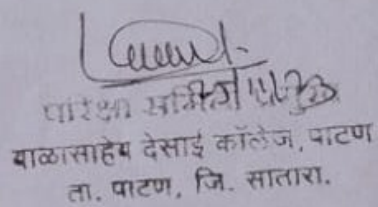 परिक्षा समिती
बाळासाहेब देसाई कॉलेज, पाटण
ता. पाटण, जि. सातारा.